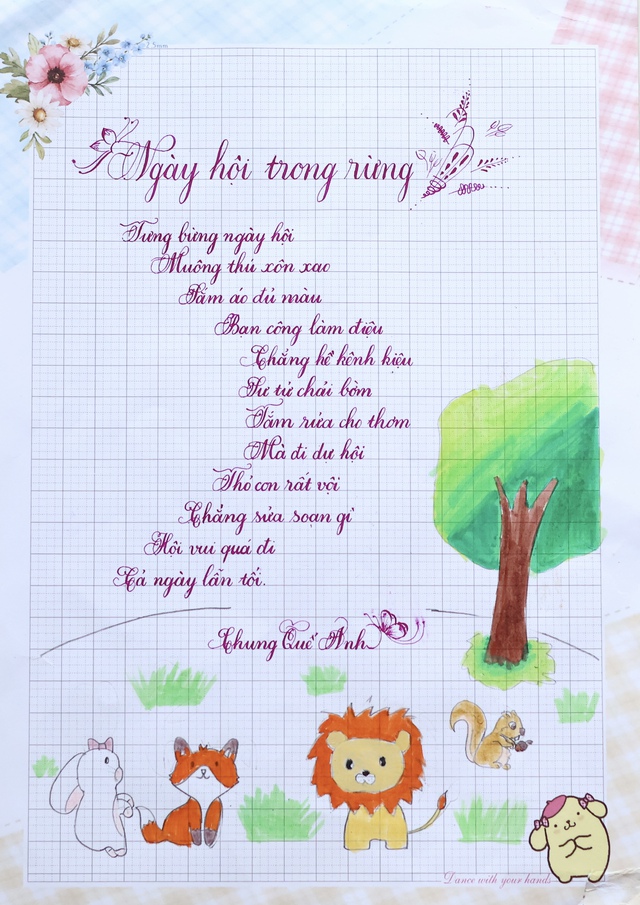 Ngày hội trong rừng
Tưng bừng ngày hội
Muông thú xôn xao
Sắm áo đủ màu
Bạn công làm điệu
Chẳng hề kênh kiệu
Sư tử chải bờm
Tắm rửa cho thơm
Mà đi dự hội
Thỏ con rất vội
Chẳng sửa soạn gì
Hội vui quá đi
Cả ngày lẫn tối.
Chung Quế Anh
Dance with your hands